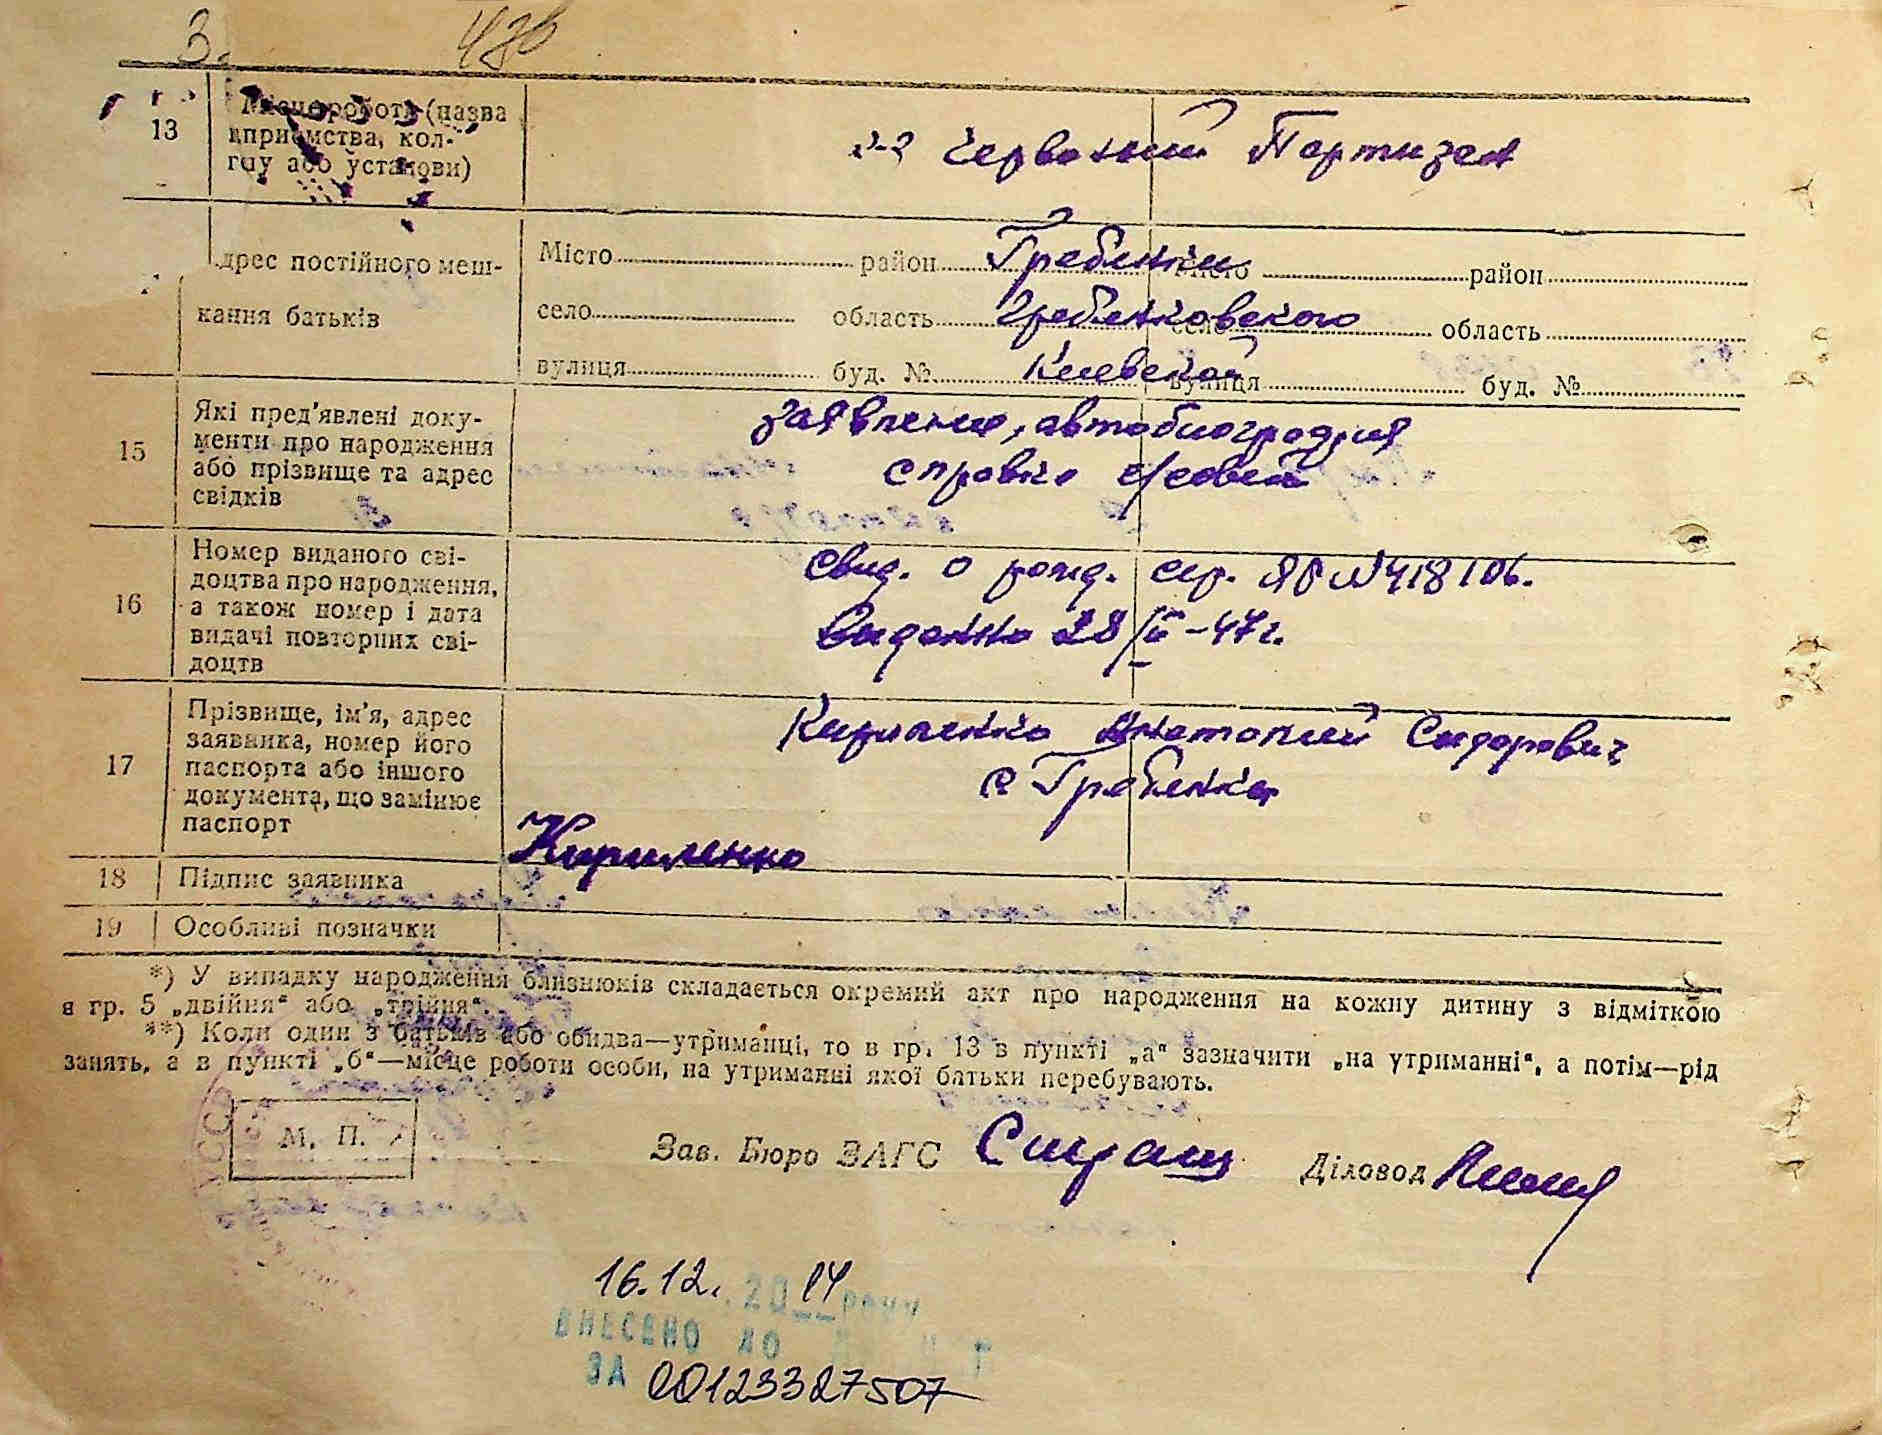 3.
13
Місце роботи (назва
дприємства, кол-
гпу або установи)
Червоный Партизан
дрес постійного меш-
кання батьків
Місто район Гребенки район
село область Гребенковского область
вулиця буд. № Киевской вулиця буд. №
15
Які пред'явлені доку-
менти про народження
або прізвище та адрес
свідків
заявление, автобиография
справка с/совета
16
Номер виданого сві-
доцтва про народження,
а також номер і дата
видачі повторних сві-
доцтв
Свид. о рожд. сер. ЯР № 418106.
Выданно 28/ -47 г.
17
Прізвище, ім'я, адрес
заявника, номер його
паспорта або іншого
документа, що замінює
паспорт
Кириленко Анатолий Сидорович
с Гребенки
Кириленко
18 Підпис заявника
19 Особливі позначки
*) У випадку народження близнюків складається окремий акт про народження на кожну дитину з відміткою
в гр. 5 „двійня“ або „трійня“.
**) Коли один з батьків або обидва—утриманці, то в гр. 13 в пункті „а“ зазначити „на утриманні“, а потім—рід
занять, а в пункті „б“—місце роботи особи, на утриманні якої батьки перебувають.
М. П.
Зав. Бюро ЗАГС Діловод
16.12. 2014 року
ВНЕСЕНО ДО
ЗА 00123327507